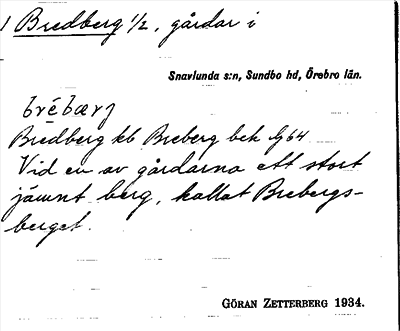 1 Bredberg 1/2, gårdar i
Snavlunda s:n, Sundbo hd, Örebro län.
brébærj
Bredberg kb Breberg bek Lg 64
Vid en av gårdarna ett stort
jämnt berg, kallat Brebergs-
berget.
GÖRAN ZETTERBERG 1934.